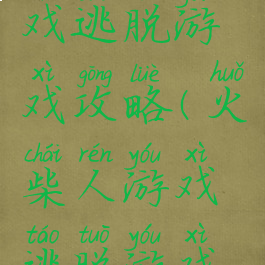 戏逃脱游
xì gōng lüè huǒ
戏攻略(火
chái rén yóu xì
柴人游戏
táo tuō yóu xì
逃脱游戏